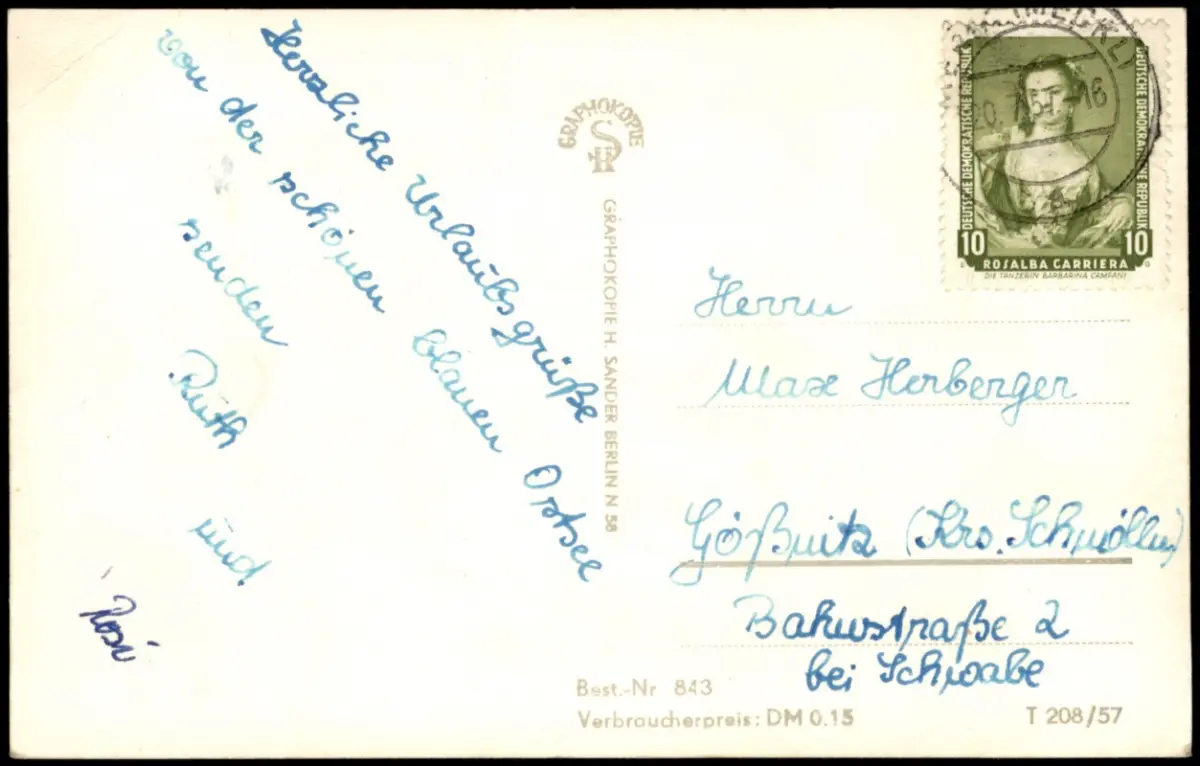 Herzliche Urlaubsgrüße
von der schönen blauen Ostsee
senden
Ruth und
Rosi
GRAPHOKOPIE
GRAPHOKOPIE H. SANDER BERLIN N 58
DEUTSCHE DEMOKRATISCHE REPUBLIK
DEUTSCHE DEMOKRATISCHE REPUBLIK
10 10
ROSALBA CARRIERA
DIE TÄNZERIN BARBARINA CAMPANI
Herrn
Max Herberger
Gößnitz (Krs. Schmölln)
Bahnstraße 2
bei Schwabe
Best.-Nr 843
Verbraucherpreis: DM 0.15
T 208/57